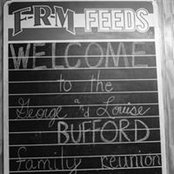 T-R-M FEEDS
WELCOME
to the
George and Louise
BUFFORD
family reunion